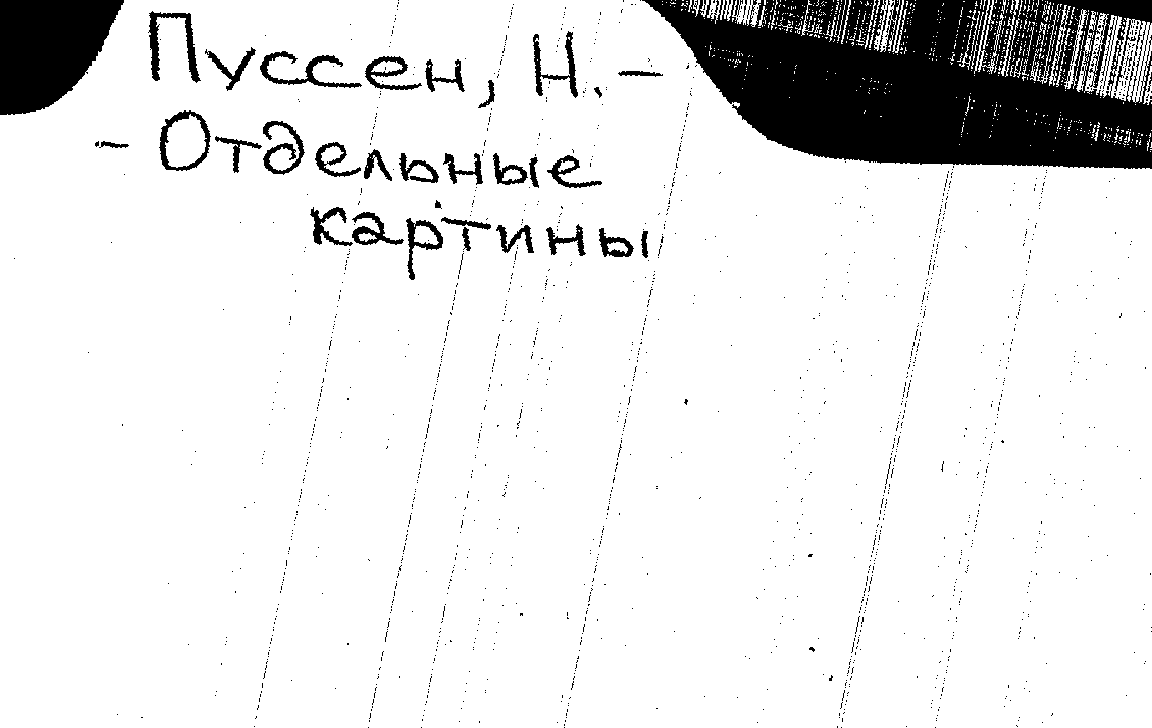 Пуссен, Н. –
– Отдельные
картины